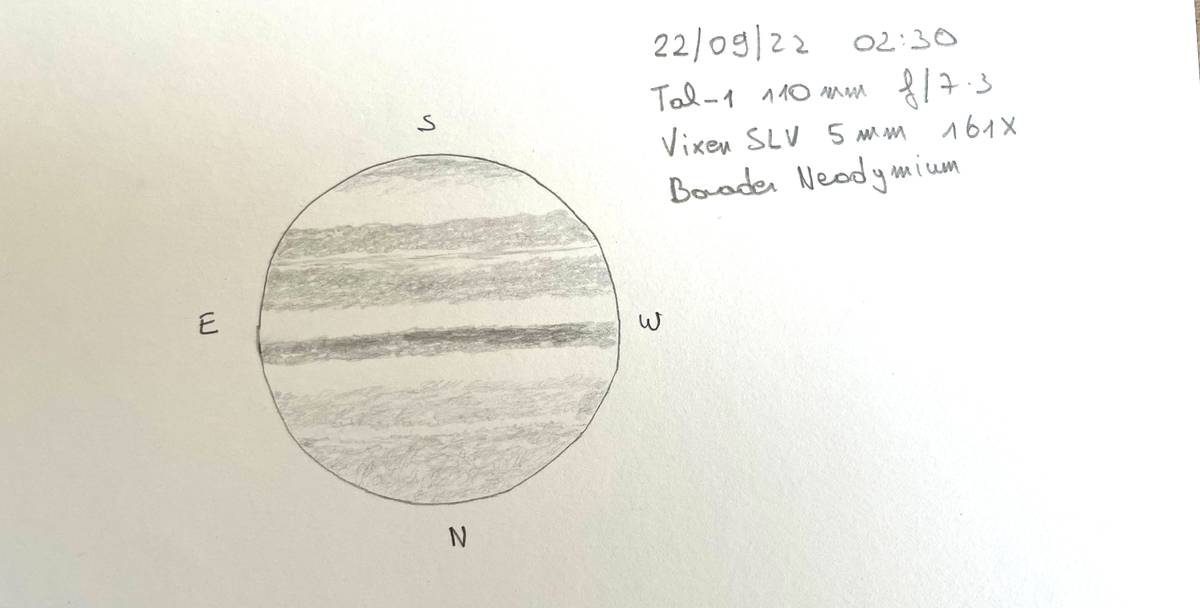 22/09/22 02:30
Tal-1 110 mm f/7.3
Vixen SLV 5 mm 161X
Baader Neodymium
S
E
W
N